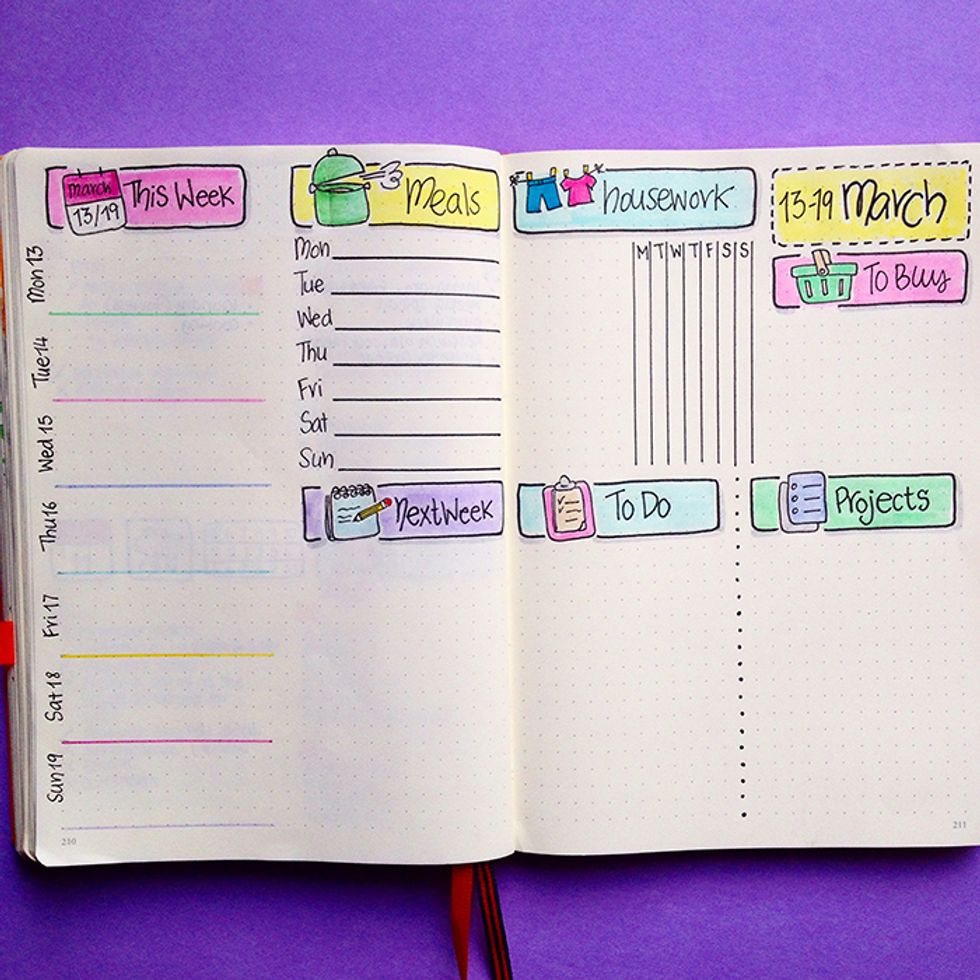 march
13/19
This Week
Mon 13
Tue 14
Wed 15
Thu 16
Fri 17
Sat 18
Sun 19
210
Meals
Mon
Tue
Wed
Thu
Fri
Sat
Sun
Next Week
housework
M T W T F S S
13-19 March
To Buy
To Do
Projects
211